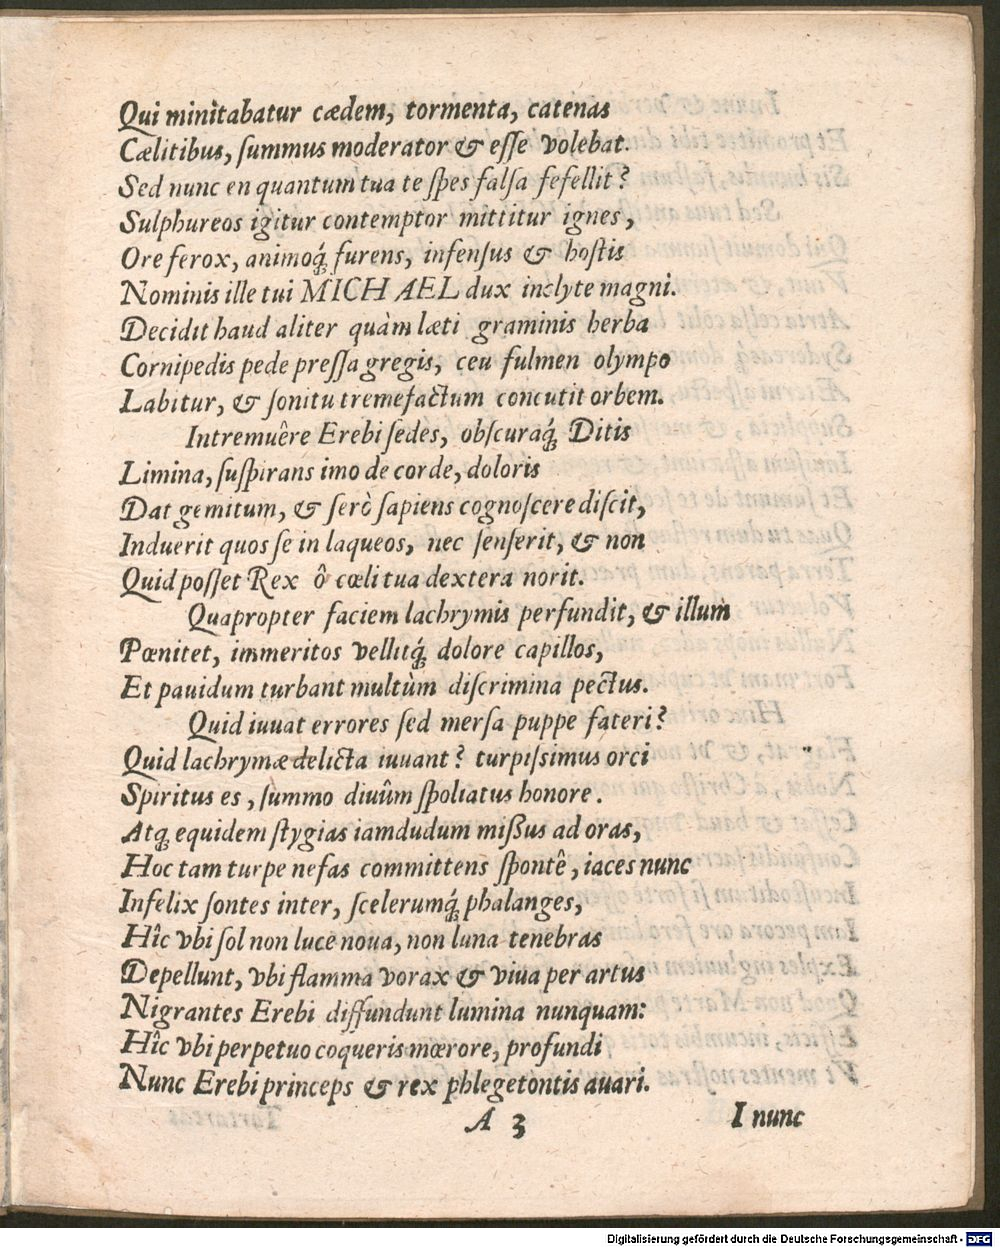 Qui minitabatur cædem, tormenta, catenas
Cælitibus, ſummus moderator & eſſe volebat.
Sed nunc en quantum tua te ſpes falſa fefellit?
Sulphureos igitur contemptor mittitur ignes,
Ore ferox, animoq́; furens, infenſus & hoſtis
Nominis ille tui MICHAEL dux inclyte magni.
Decidit haud aliter quàm læti graminis herba
Cornipedis pede preſſa gregis, ceu fulmen olympo
Labitur, & ſonitu tremefactum concutit orbem.
Intremuêre Erebi ſedes, obſcuraq́; Ditis
Limina, ſuſpirans imo de corde, doloris
Dat gemitum, & ſerò ſapiens cognoſcere diſcit,
Induerit quos ſe in laqueos, nec ſenſerit, & non
Quid poſſet Rex ô cœli tua dextera norit.
Quapropter faciem lachrymis perfundit, & illum
Pœnitet, immeritos vellitq́; dolore capillos,
Et pauidum turbant multùm diſcrimina pectus.
Quid iuuat errores ſed merſa puppe fateri?
Quid lachrymæ delicta iuuant? turpiſsimus orci
Spiritus es, ſummo diuûm ſpoliatus honore.
Atq; equidem ſtygias iamdudum mißus ad oras,
Hoc tam turpe nefas committens ſpontê, iaces nunc
Infelix ſontes inter, ſcelerumq́; phalanges,
Hîc vbi ſol non luce noua, non luna tenebras
Depellunt, vbi flamma vorax & viua per artus
Nigrantes Erebi diffundunt lumina nunquam:
Hîc vbi perpetuo coqueris mœrore, profundi
Nunc Erebi princeps & rex phlegetontis auari.
A 3 I nunc
Digitalisierung gefördert durch die Deutsche Forschungsgemeinschaft - DFG